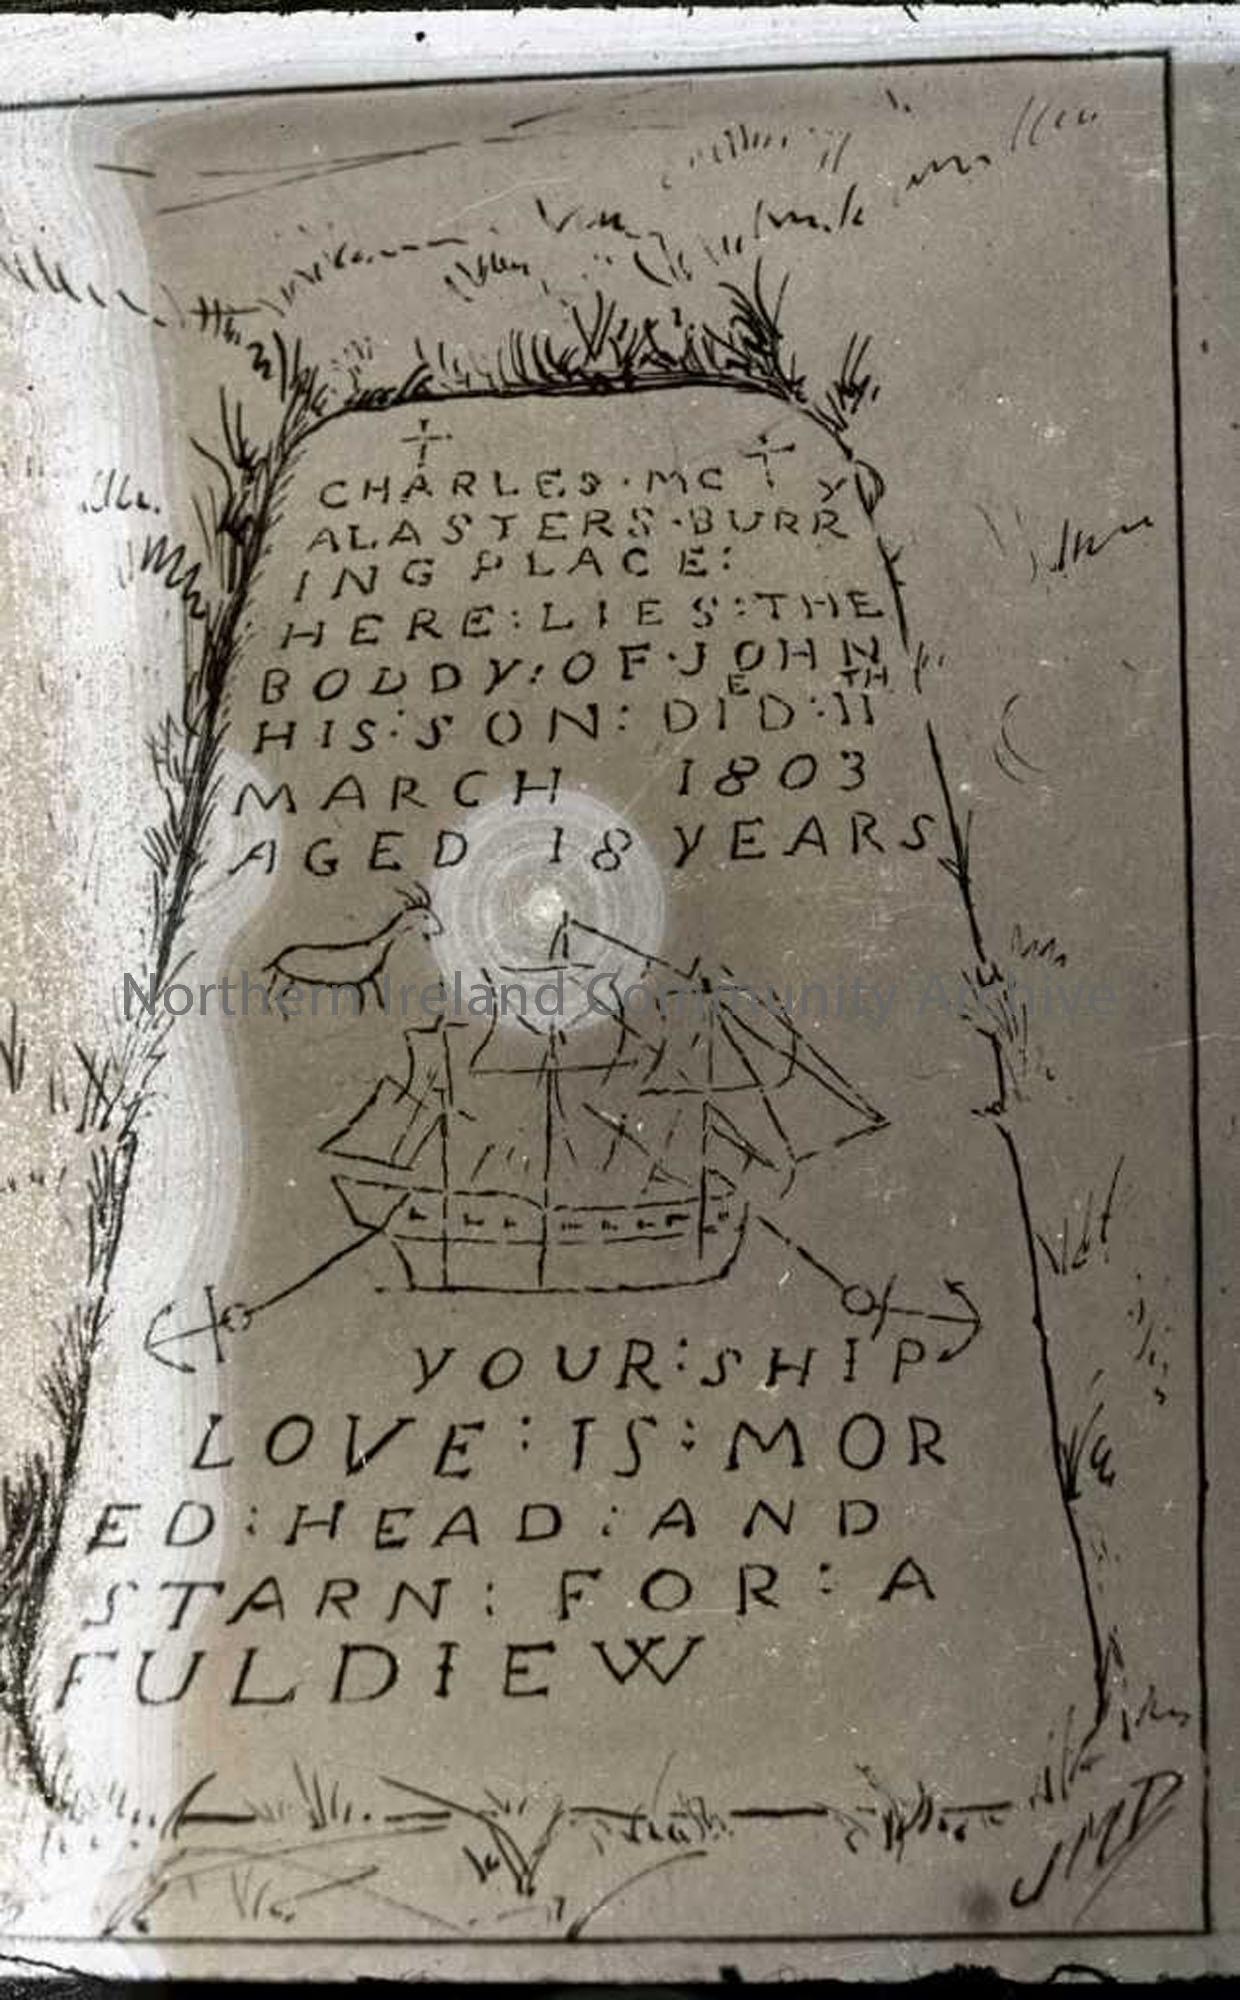 CHARLES · MC
Y
ALASTERS · BURR
ING PLACE:
HERE : LIES : THE
BODDY : OF · JOHN
E TH
HIS : SON : DID : 11
MARCH 1803
AGED 18 YEARS
Northern Ireland Community Archive
YOUR : SHIP
LOVE : IS : MOR
ED : HEAD : AND
STARN : FOR : A
FULDIEW
JMD